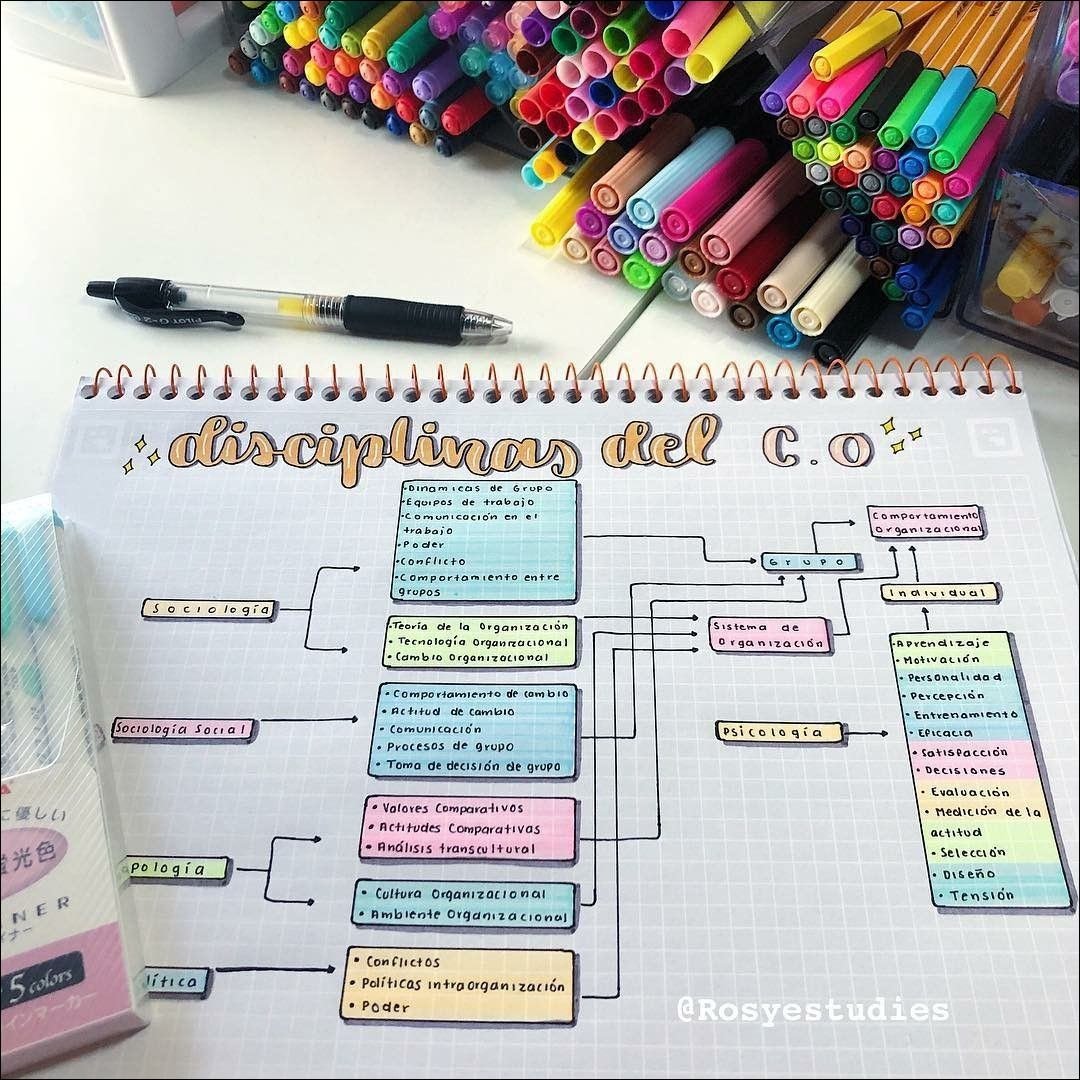 PILOT G-2
disciplinas del C.O
•Dinamicas de Grupo
•Equipos de trabajo
•Comunicación en el
trabajo
•Poder
•Conflicto
•Comportamiento entre
grupos
Comportamiento
Organizacional
Grupo
Individual
Sociología
•Teoría de la Organización
• Tecnología Organizacional
• Cambio Organizacional
Sistema de
Organización
•Aprendizaje
• Motivación
• Personalidad
• Percepción
• Entrenamiento
• Eficacia
• Satisfacción
• Decisiones
• Evaluación
• Medición de la
actitud
• Selección
• Diseño
• Tensión
Sociología Social
• Comportamiento de cambio
• Actitud de cambio
• Comunicación
• Procesos de grupo
• Toma de decisión de grupo
Psicología
• Valores Comparativos
• Actitudes Comparativas
• Análisis transcultural
pología
• Cultura Organizacional
• Ambiente Organizacional
lítica
• Conflictos
• Políticas intraorganización
• Poder
に優しい
蛍光色
NER
イナー
5 colors
インマーカー
@Rosyestudies